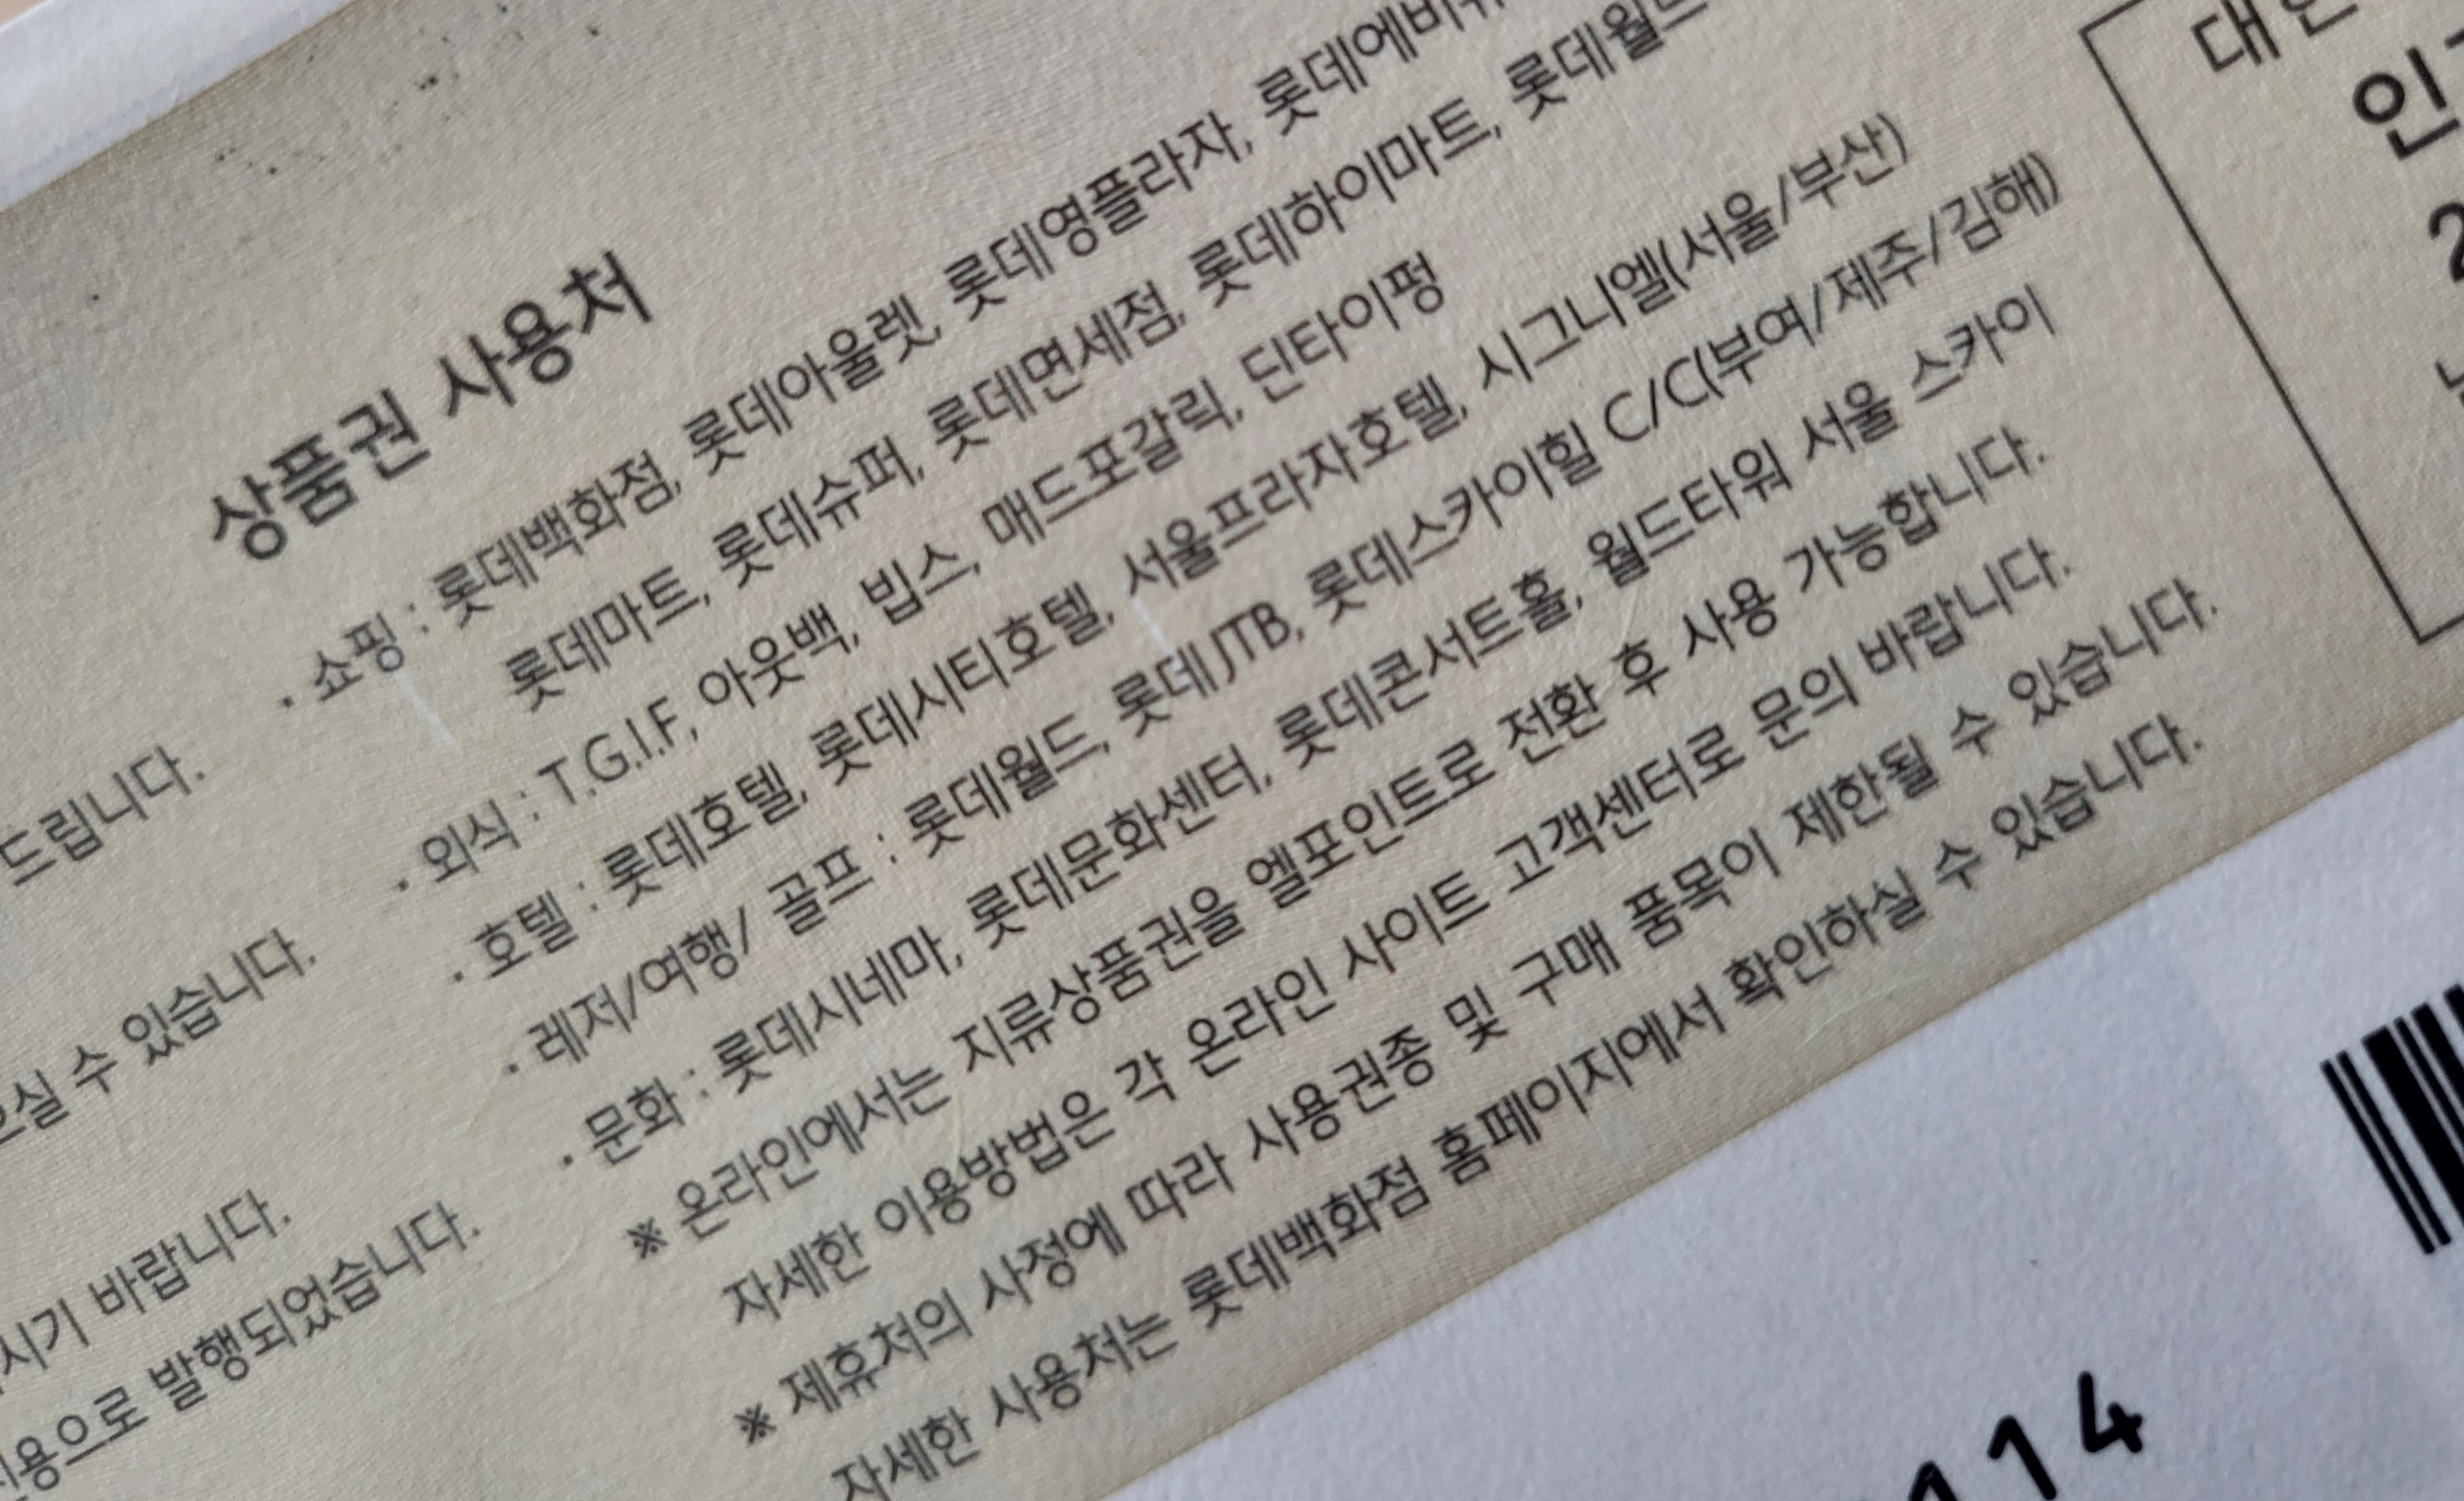 상품권 사용처
· 쇼핑 : 롯데백화점, 롯데아울렛, 롯데영플라자,
롯데마트, 롯데슈퍼, 롯데면세점, 롯데하이마트, 롯데월드
· 외식 : T.G.I.F, 아웃백, 빕스, 매드포갈릭, 딘타이펑
· 호텔 : 롯데호텔, 롯데시티호텔, 서울프라자호텔, 시그니엘(서울/부산)
· 레저/여행/ 골프 : 롯데월드, 롯데JTB, 롯데스카이힐 C/C(부여/제주/김해)
· 문화 : 롯데시네마, 롯데문화센터, 롯데콘서트홀, 월드타워 서울 스카이
※ 온라인에서는 지류상품권을 엘포인트로 전환 후 사용 가능합니다.
자세한 이용방법은 각 온라인 사이트 고객센터로 문의 바랍니다.
※ 제휴처의 사정에 따라 사용권종 및 구매 품목이 제한될 수 있습니다.
자세한 사용처는 롯데백화점 홈페이지에서 확인하실 수 있습니다.
드립니다.
수 있습니다.
바랍니다.
발행되었습니다.
114